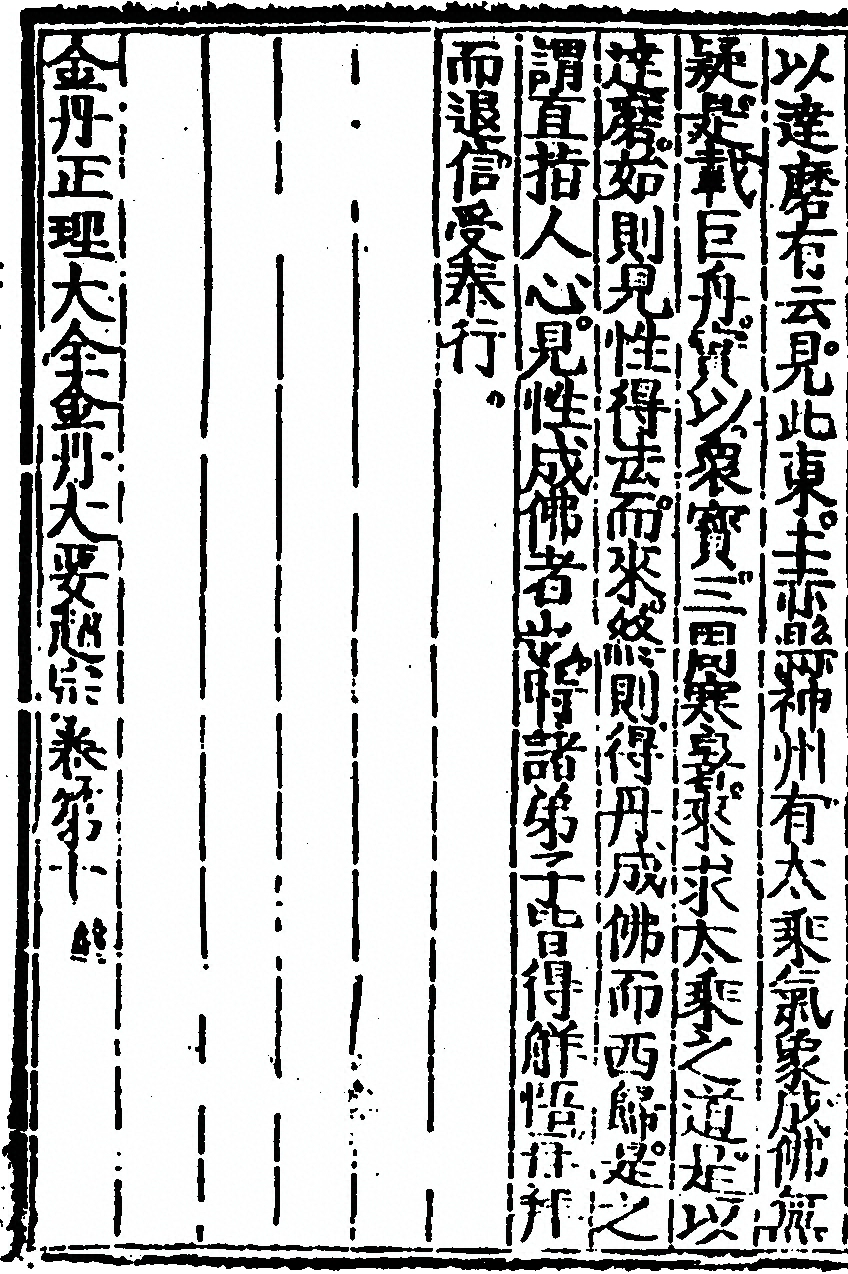 以達磨有云見此東土赤縣神州有大乘氣象成佛無
疑是載巨舟實以衆寶三問寒暑來求大乘之道是以
達磨始則見性得法而來終則得丹成佛而西歸是之
謂直指人心見性成佛者此時諸弟子皆得解悟再拜
而退信受奉行
金丹正理大全金丹大要卷第十